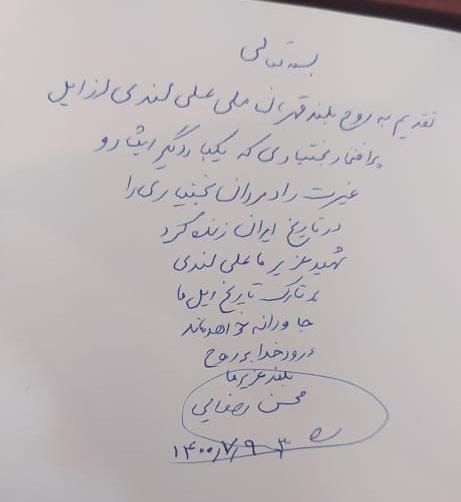 بسمه تعالی
تقدیم به روح بلند قهرمان ملی علی لندی از ایل
پر افتخار بختیاری که یکبار دیگر ایثار و
غیرت رادمردان بختیاری را
در تاریخ ایران زنده کرد
شهید عزیز ما علی لندی
بر تارک تاریخ ایل ما
جاودانه خواهد ماند
درود خدا بر روح
بلند عزیز ما
محسن رضایی
۱۴۰۰/۷/۹